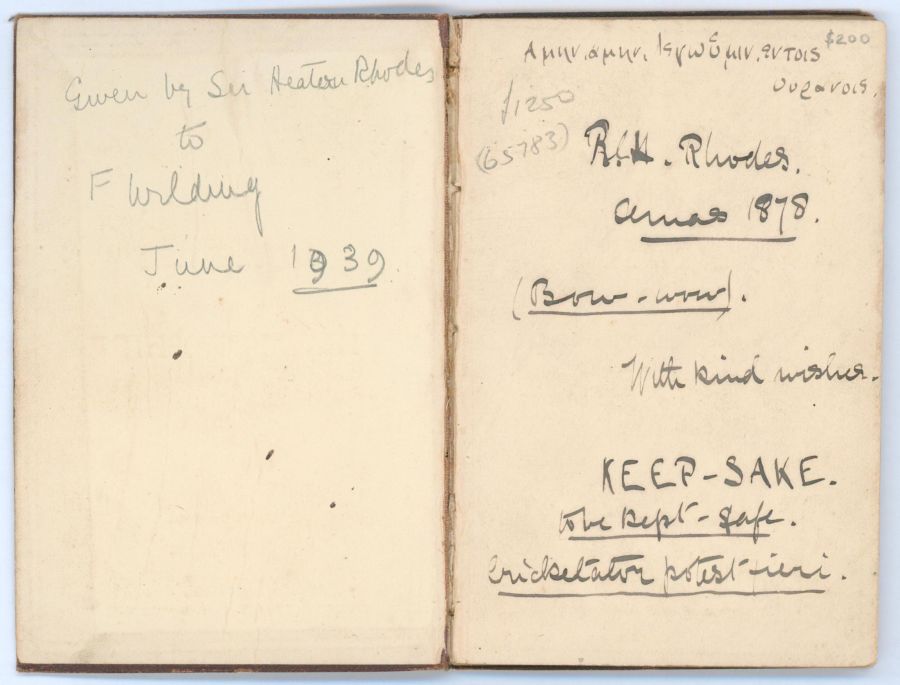 Given by Sir Heaton Rhodes
to
F Wilding
June 1939.
$200
Αμην αμην. λεγω υμιν. εντοις
ουρανοις.
£1250
(65783)
R.H. Rhodes.
Xmas 1878.
(Bow-wow).
With kind wishes.
KEEP-SAKE.
to be kept-safe.
Cricketator potest fieri.